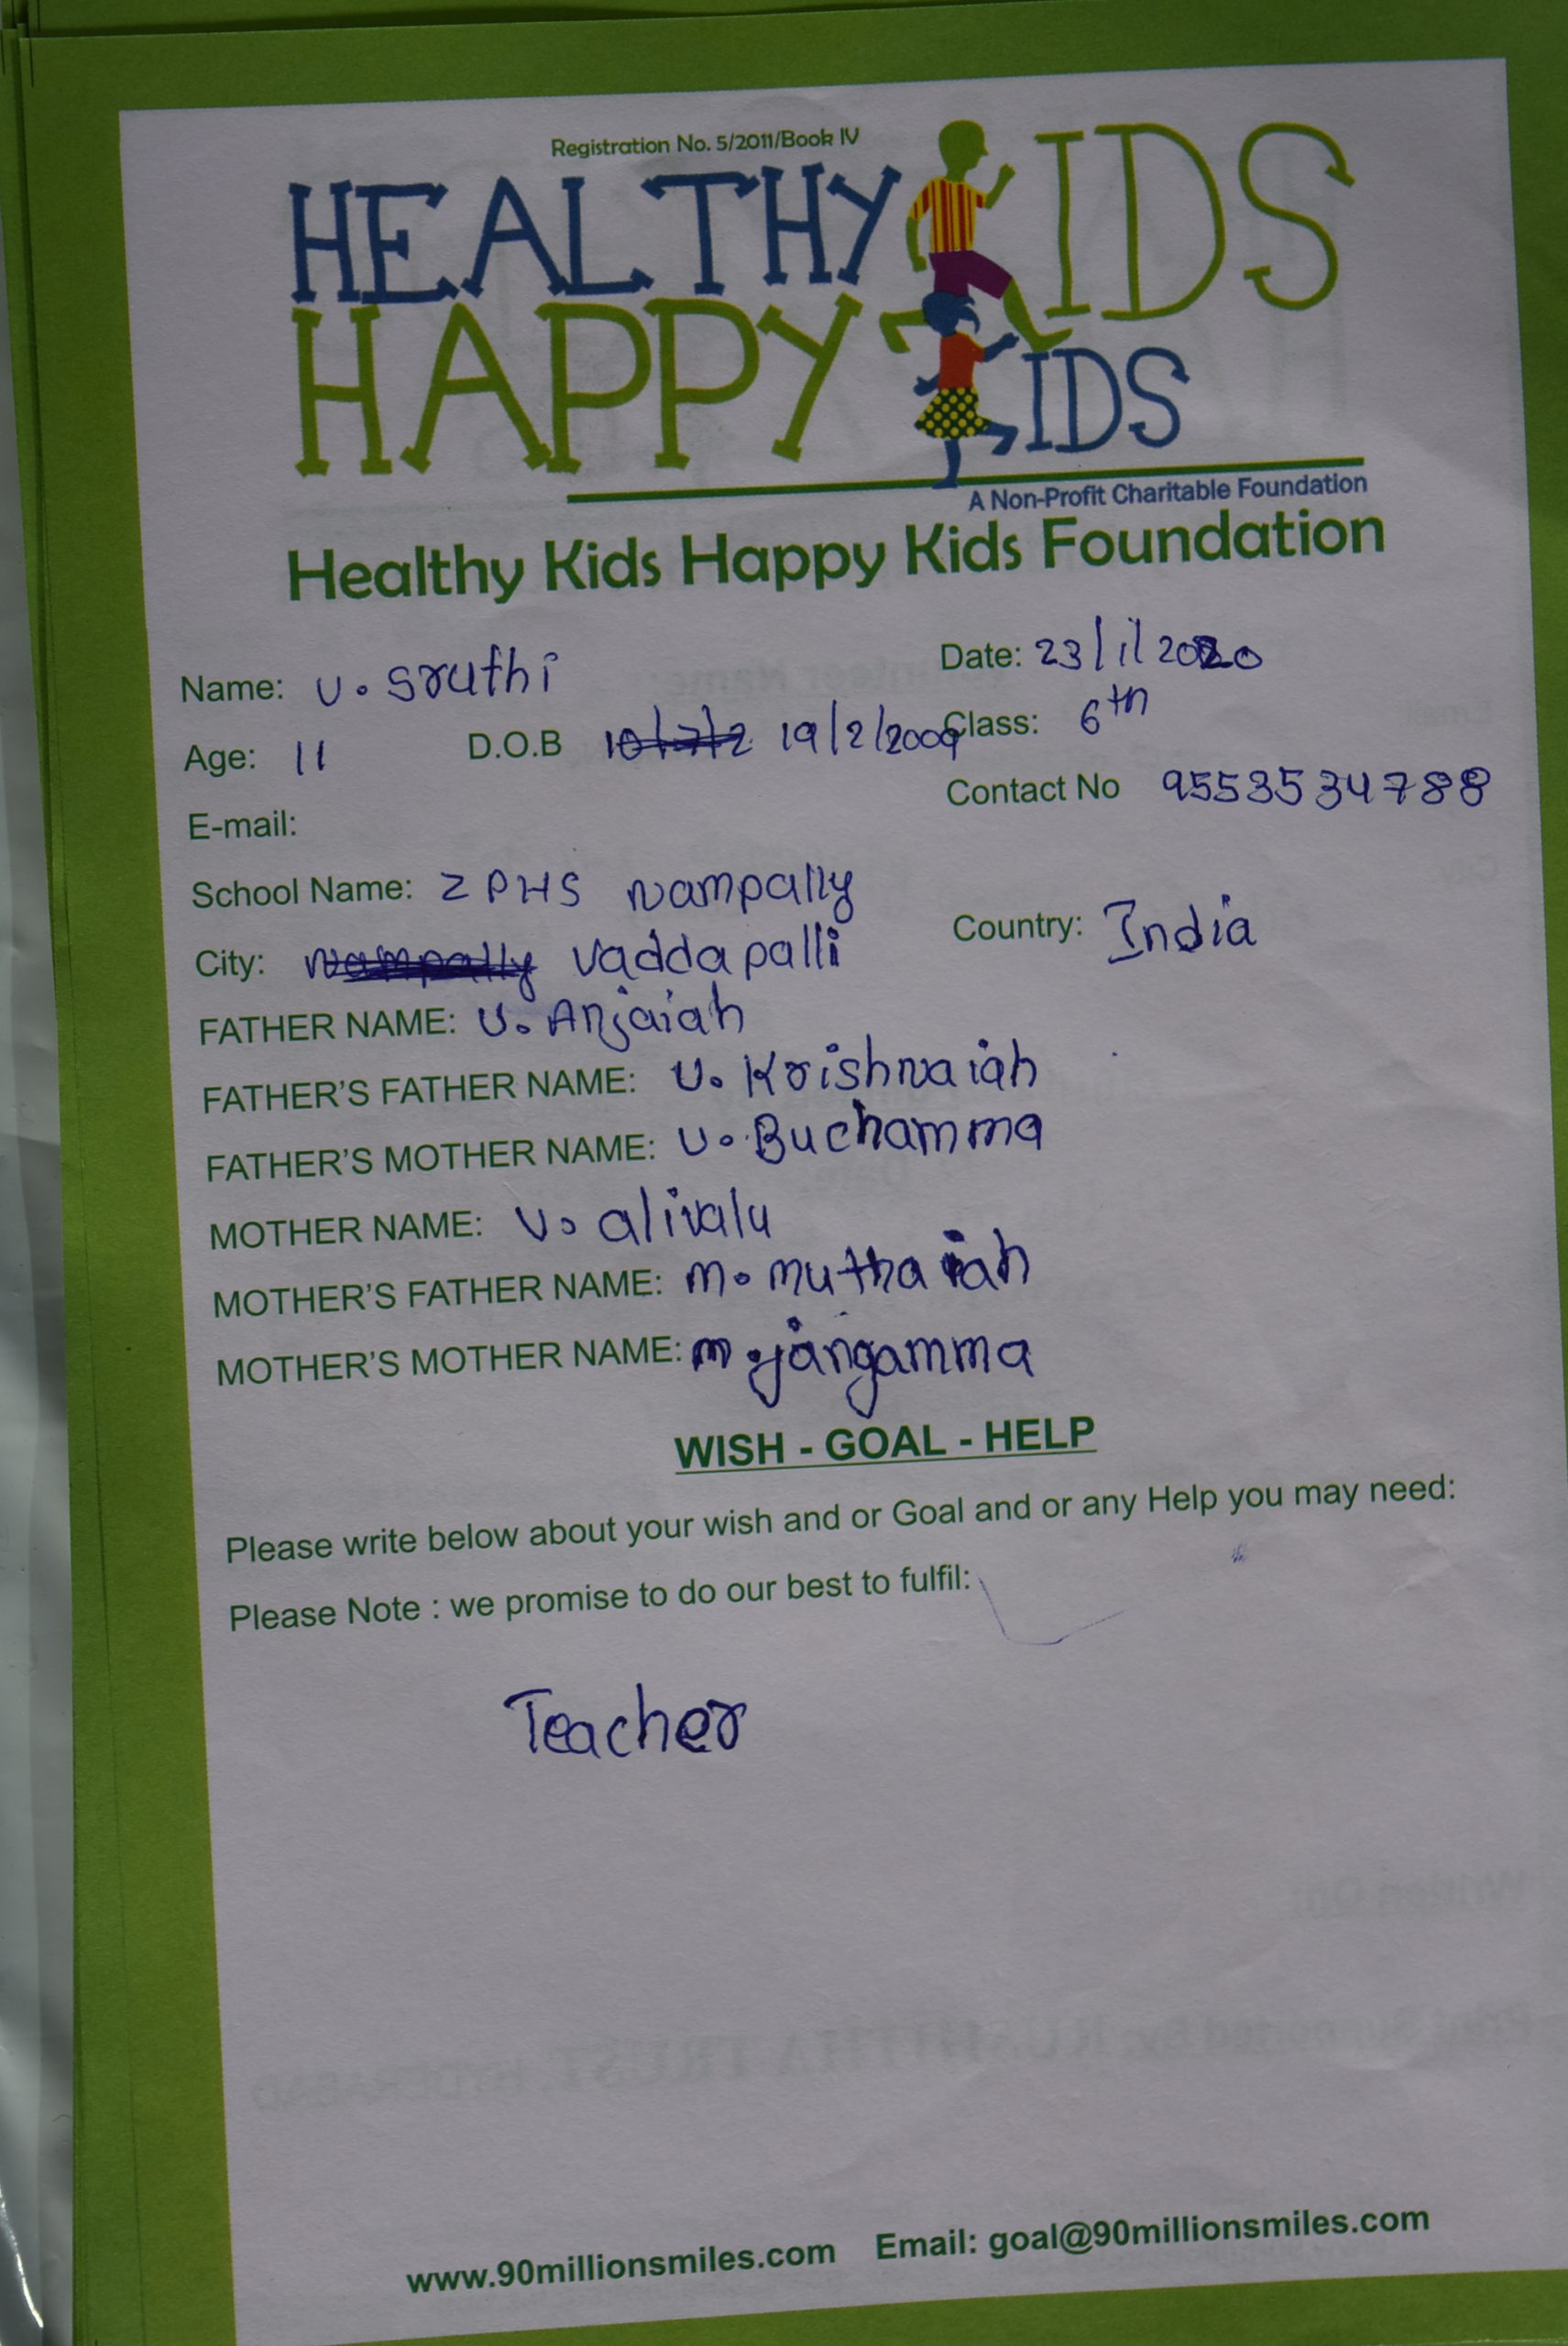 Registration No. 5/2011/Book IV
HEALTHY KIDS
HAPPY KIDS
A Non-Profit Charitable Foundation
Healthy Kids Happy Kids Foundation
Name: U. Sruthi Date: 23/1/2020
Age: 11 D.O.B 10/7/2 19/2/2009 Class: 6th
E-mail: Contact No 9553534788
School Name: ZPHS Nampally
City: Nampally Vaddapalli Country: India
FATHER NAME: U. Anjaiah
FATHER'S FATHER NAME: U. Krishnaiah
FATHER'S MOTHER NAME: U. Buchamma
MOTHER NAME: U. alivalu
MOTHER'S FATHER NAME: M. Muthaiah
MOTHER'S MOTHER NAME: M. jangamma
WISH - GOAL - HELP
Please write below about your wish and or Goal and or any Help you may need:
Please Note : we promise to do our best to fulfil:
Teacher
www.90millionsmiles.com Email: goal@90millionsmiles.com